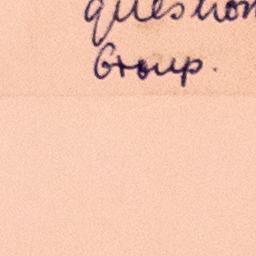 question
Group.